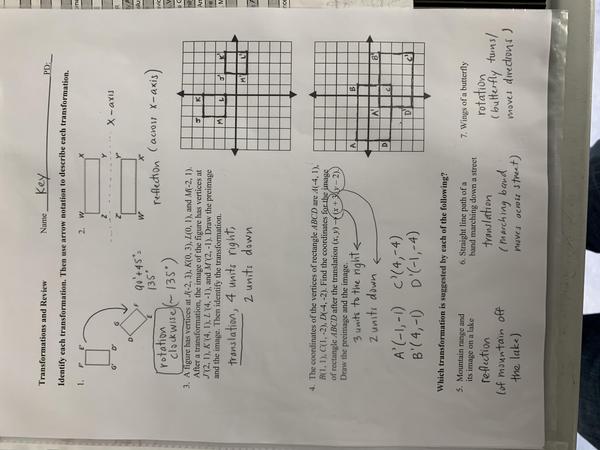 Transformations and Review Name Key PD:
Identify each transformation. Then use arrow notation to describe each transformation.
1.
F E' E
G' D'
G F
D E
rotation
clockwise (~ 135°)
90°+45°=
135°
2.
W X
Z Y
Z' Y'
W' X'
x-axis
reflection (across x-axis)
3. A figure has vertices at J(-2, 3), K(0, 3), L(0, 1), and M(-2, 1).
After a transformation, the image of the figure has vertices at
J'(2, 1), K'(4, 1), L'(4, -1), and M'(2, -1). Draw the preimage
and the image. Then identify the transformation.
translation, 4 units right,
2 units down
J K
M L
J' K'
M' L'
4. The coordinates of the vertices of rectangle ABCD are A(-4, 1),
B(1, 1), C(1, -2), D(-4, -2). Find the coordinates for the image
of rectangle ABCD after the translation (x, y) → (x + 3, y – 2).
Draw the preimage and the image.
3 units to the right
2 units down
A'(-1,-1) C'(4,-4)
B'(4,-1) D'(-1,-4)
A B
D C
A' B'
D' C'
Which transformation is suggested by each of the following?
5. Mountain range and
its image on a lake
reflection
(of mountain off
the lake)
6. Straight line path of a
band marching down a street
translation
(marching band
moves across street)
7. Wings of a butterfly
rotation
(butterfly turns/
moves directions)